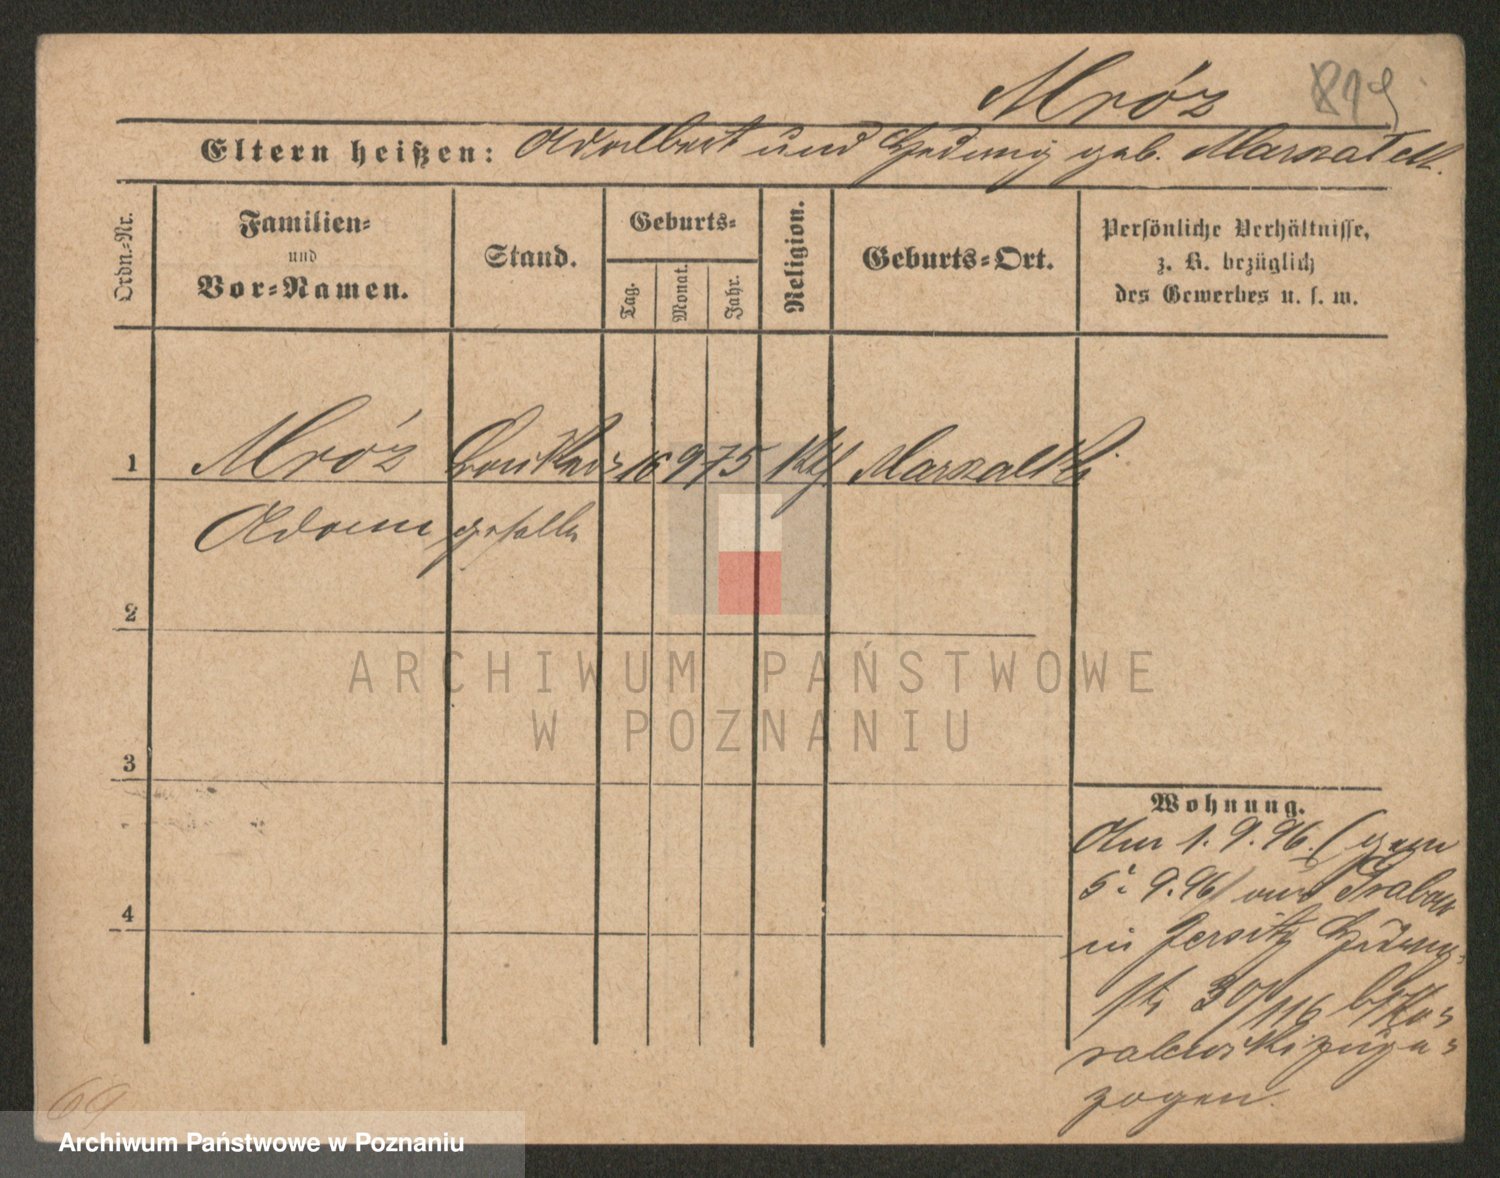 Mróz 819
Eltern heißen: Adalbert und Hedwig geb. Marszałek.
Ordn.-Nr.
Familien-
und
Vor-Namen.
Stand.
Geburts-
Tag.
Monat.
Jahr.
Religion.
Geburts-Ort.
Persönliche Verhältnisse,
z. B. bezüglich
des Gewerbes u. s. w.
1 Mróz 16 9 75 Kth. Marszalki
Adam geselle
2
3
4
ARCHIWUM PAŃSTWOWE
W POZNANIU
Wohnung.
Am 1. 9. 96. (gem
5. 9. 96) aus Grabow
in Jersitz Hedwig-
str 30/116 b/
zuge-
zogen.
69
Archiwum Państwowe w Poznaniu